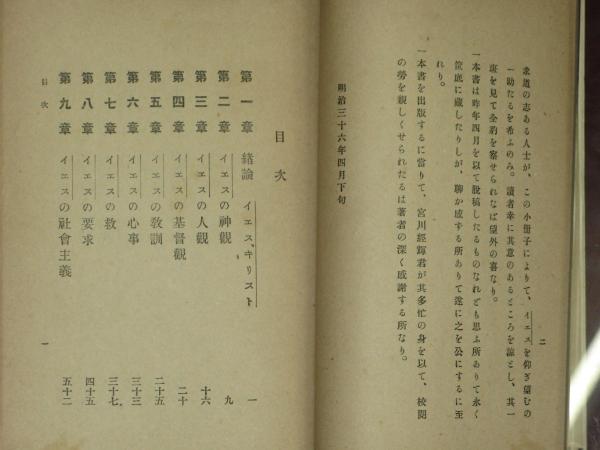 二
求道の志ある人士が、この小冊子によりて、イエスを仰ぎ望むの
一助たるを希ふのみ。讀者幸に其意のあるところを諒とし、其一
斑を見て全豹を察せられなば望外の喜なり。
一本書は昨年四月を以て脫稿したるものなれども思ふ所ありて永く
筐底に藏したりしが、聊か感ずる所ありて遂に之を公にするに至
れり。
一本書を出版するに當りて、宮川經輝君が其多忙の身を以て、校閱
の勞を親しくせられたるは著者の深く感謝する所なり。
明治三十六年四月下旬
目次
第一章 緒論 イエス、キリスト 一
第二章 イエスの神觀 九
第三章 イエスの人觀 十六
第四章 イエスの基督觀 二十
第五章 イエスの敎訓 二十五
第六章 イエスの心事 三十三
第七章 イエスの敎 三十七
第八章 イエスの要求 四十五
第九章 イエスの社會主義 五十二
目次
一